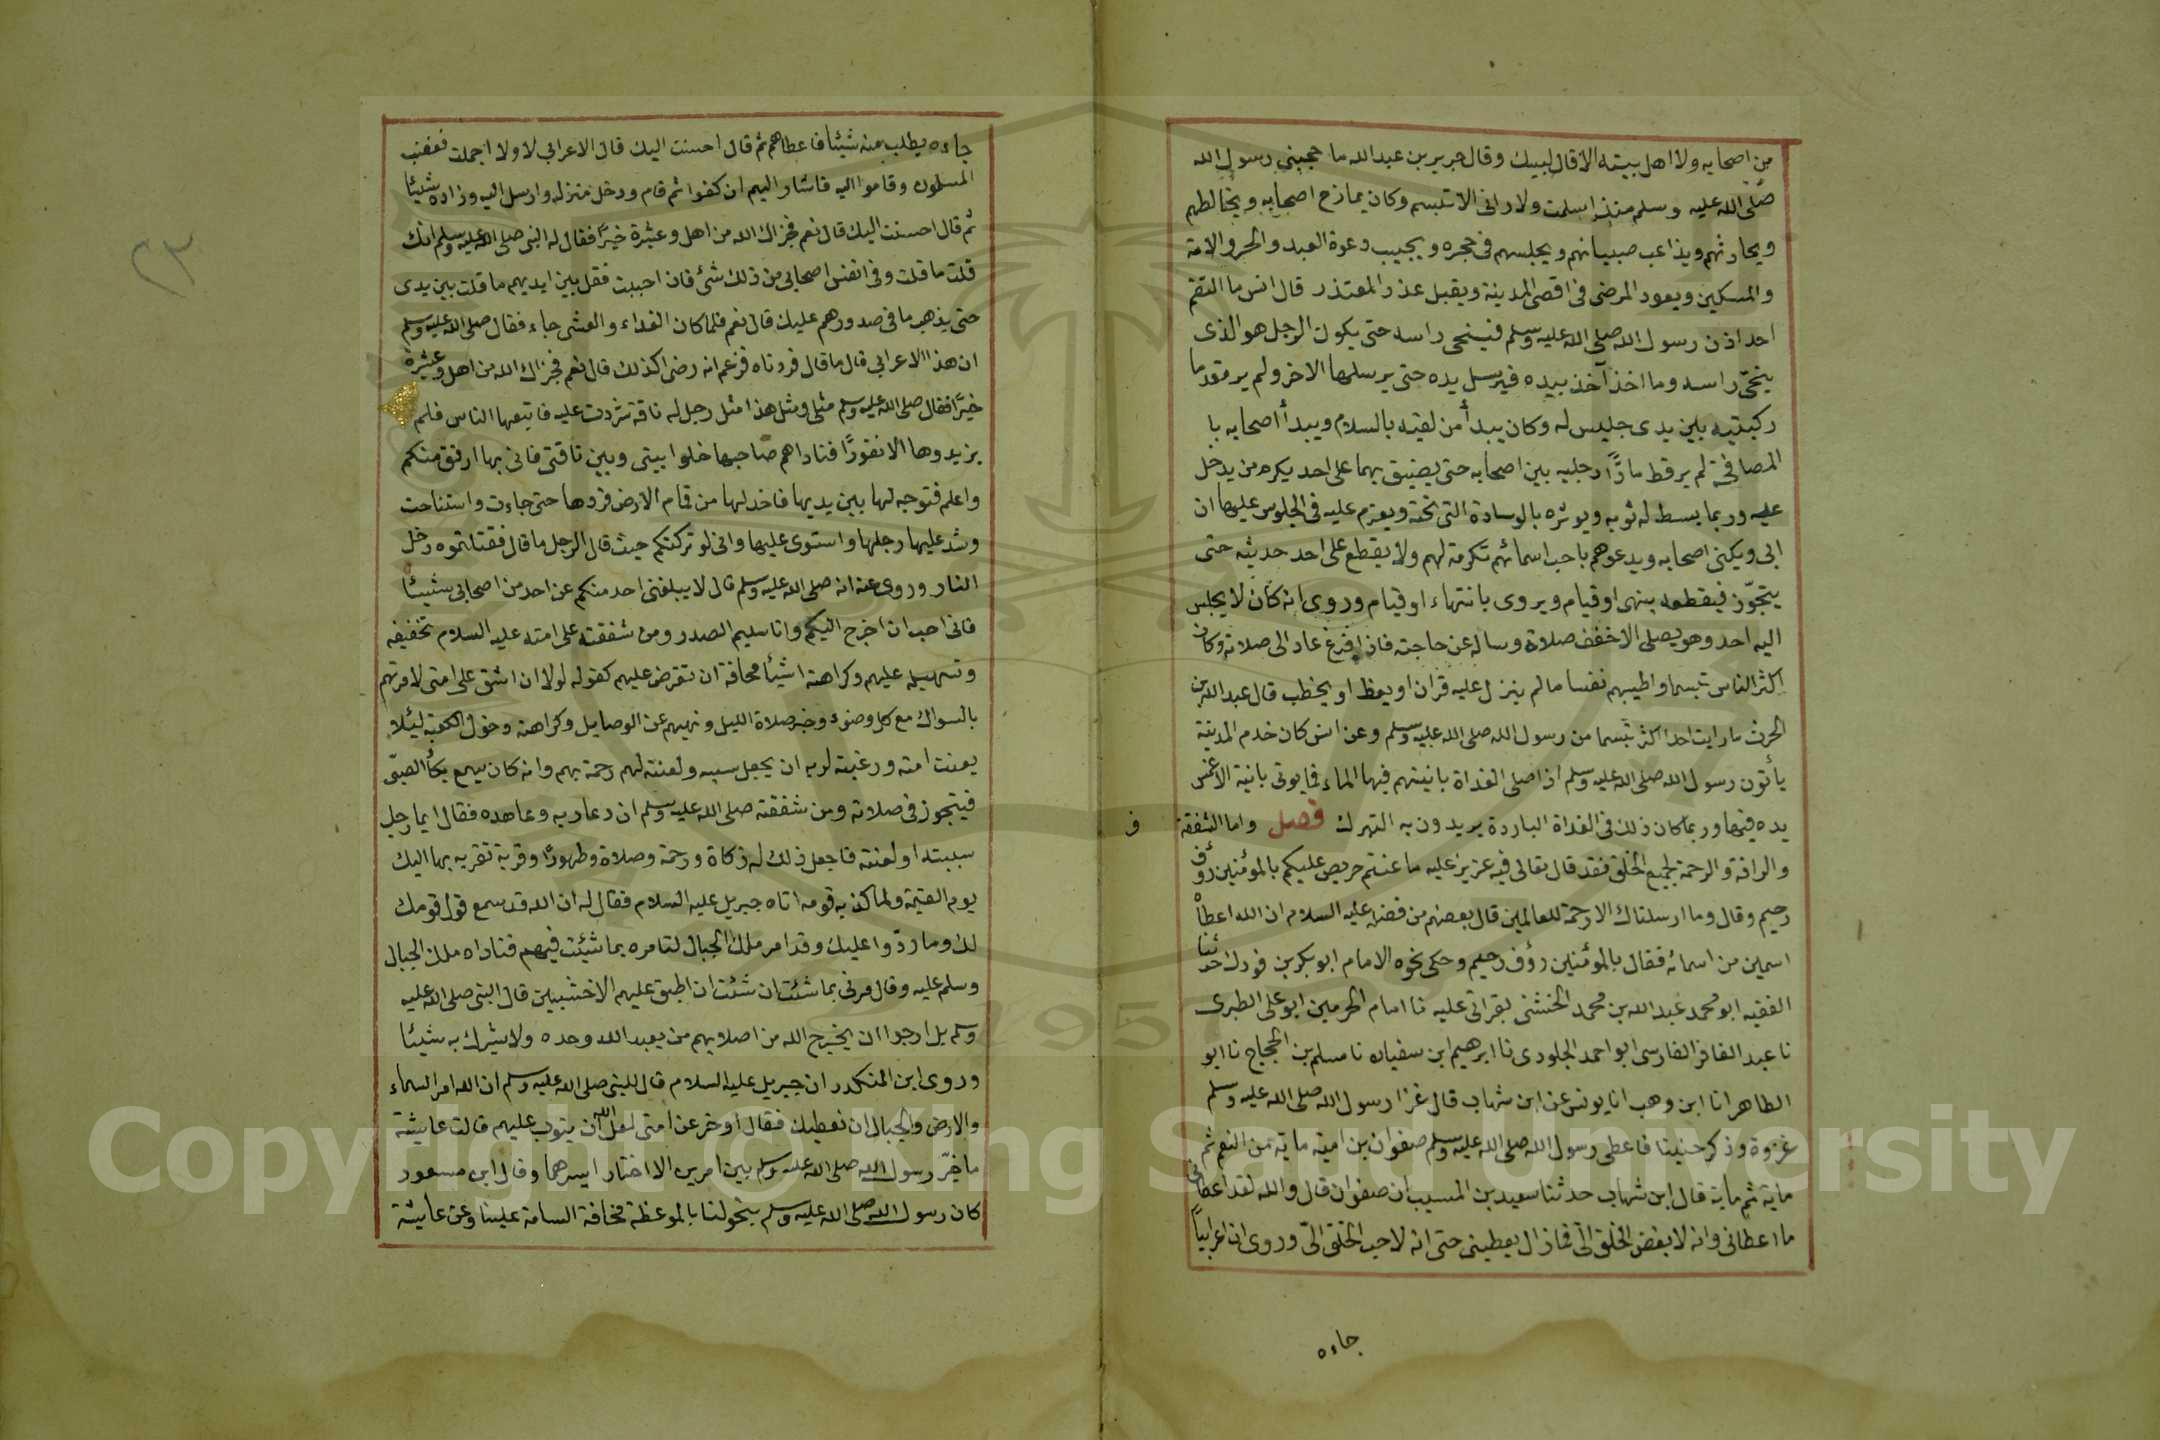 من اصحابه ولا اهل بيته الا قال لبيك وقال جرير بن عبد الله ما حجبني رسول الله
صلى الله عليه وسلم منذ اسلمت ولا راني الا تبسم وكان يمازح اصحابه ويخالطهم
ويحادثهم ويذاعب صبيانهم ويجلسهم في حجره ويجيب دعوة العبد والحر والامة
والمسكين ويعود المرضى في اقصى المدينة ويقبل عذر المعتذر قال انس ما التقم
احد اذن رسول الله صلى الله عليه وسلم فينحى راسه حتى يكون الرجل هو الذى
ينحّى راسه وما اخذ آخذ بيده فيرسل يده حتى يرسلها الاخر ولم ير مقدما
ركبتيه بين يدى جليس له وكان يبدأ من لقيه بالسلام ويبدأ اصحابه با
المصافحة لم ير قط مادًّا رجليه بين اصحابه حتى يضيق بهما على احد يكرم من يدخل
عليه وربما بسط له ثوبه ويوثره بالوسادة التى تحته ويعزم عليه في الجلوس عليها ان
ابى ويكنى اصحابه ويدعوهم باحب اسمائهم تكرمة لهم ولا يقطع على احد حديثه حتى
يتجوّز فيقطعه بنهى او قيام ويروى بانتهاء او قيام وروى انه كان لا يجلس
اليه احد وهو يصلى الا خفف صلاته وساله عن حاجته فاذا فرغ عاد الى صلاته وكان
اكثر الناس تبسما واطيبهم نفسا ما لم ينزل عليه قران او يعظ او يخطب قال عبد الله بن
الحرث ما رايت احدا اكثر تبسما من رسول الله صلى الله عليه وسلم وعن انس كان خدم المدينة
يأتون رسول الله صلى الله عليه وسلم اذا صلى الغداة بانيتهم فيها الماء فما يوتى بانية الا غمس
يده فيها وربما كان ذلك في الغداة الباردة يريدون به التبرك فصل واما الشفقة
ف
والرافة والرحمة لجميع الخلق فقد قال تعالى فيه عزيز عليه ما عنتم حريص عليكم بالمؤمنين رؤف
رحيم وقال وما ارسلناك الا رحمة للعالمين قال بعضهم من فضله عليه السلام ان الله اعطاه
اسمين من اسمائه فقال بالمؤمنين رؤف رحيم وحكى نحوه الامام ابو بكر بن فورك حدثنا
الفقيه ابو محمد عبد الله بن محمد الخشنى بقراتى عليه نا امام الحرمين ابو على الطبرى
نا عبد الغافر الفارسى ابو احمد الجلودى نا ابرهيم ابن سفيان نا مسلم بن الحجاج نا ابو
الطاهر انا ابن وهب انا يونس عن ابن شهاب قال غزا رسول الله صلى الله عليه وسلم
غزوة وذكر حنينا فاعطى رسول الله صلى الله عليه وسلم صفوان بن امية ماية من النعم ثم
ماية ثم ماية قال ابن شهاب حدثنا سعيد بن المسيب ان صفوان قال والله لقد اعطانى
ما اعطانى وانه لابغض الخلق الىّ فما زال يعطينى حتى انه لاحب الخلق الىّ وروى ان اعرابيًّا
جاءه
٢٣
جاءه يطلب منه شيئا فاعطاهم ثم قال احسنت اليك قال الاعرابى لا ولا اجملت فغضب
المسلمون وقاموا اليه فاشار اليهم ان كفوا ثم قام ودخل منزله وارسل اليه وزاده شيئا
ثم قال احسنت اليك قال نعم فجزاك الله من اهل وعشرة خيرًا فقال له النبى صلى الله عليه وسلم انك
قلت ما قلت وفى انفس اصحابى من ذلك شئ فان احببت فقل بين ايديهم ما قلت بين يدى
حتى يذهب ما فى صدورهم عليك قال نعم فلما كان الغداء والعشى جاء فقال صلى الله عليه وسلم
ان هذا الاعرابى قال ما قال فزدناه فزعم انه رضى اكذلك قال نعم فجزاك الله من اهل وعشرة
خيرًا فقال صلى الله عليه وسلم مثلى ومثل هذا مثل رجل له ناقة شردت عليه فاتبعها الناس فلم
يزيدوها الا نفورًا فناداهم صاحبها خلوا بيتى وبين ناقتى فانى بها ارفق منكم
واعلم فتوجه لها بين يديها فاخد لها من قمام الارض فردها حتى جاءت واستناخت
وشد عليها رحلها واستوى عليها وانى لو تركتكم حيث قال الرجل ما قال فقتلتموه دخل
النار وروى عنه انه صلى الله عليه وسلم قال لا يبلغنى احد منكم عن احد من اصحابى شيئا
فانى احب ان اخرج اليكم وانا سليم الصدر ومن شفقته على امته عليه السلام تخفيفه
وتسهيله عليهم وكراهته اشيئا مخافة ان تفرض عليهم كقوله لولا ان اشق على امتى لامرتهم
بالسواك مع كل وضوء وخبر صلاة الليل ونهيهم عن الوصايل وكراهته دخول الكعبة ليئلا
يعنت امته ورغبته لربه ان يجعل سبه ولعنته لهم رحمة بهم وانه كان يسمع بكأ الصبّى
فيتجوز فى صلاته ومن شفقته صلى الله عليه وسلم ان دعا ربه وعاهده فقال ايما رجل
سببته او لعنته فاجعل ذلك له زكاة ورحمة وصلاة وطهورًا وقربة تقربه بها اليك
يوم القيمة ولما كذبه قومه اتاه جبريل عليه السلام فقال له ان الله قد سمع قول قومك
لك وما ردّوا عليك وقد امر ملك الجبال لتامره بما شيئت فيهم فناداه ملك الجبال
وسلم عليه وقال مرنى بما شئت ان شئت ان اطبق عليهم الاخشبين قال النبى صلى الله عليه
وسلم بل ارجوا ان يخرج الله من اصلابهم من يعبد الله وحده ولا يشرك به شيئا
وروى ابن المنكدر ان جبريل عليه السلام قال للنبى صلى الله عليه وسلم ان الله امر السماء
والارض والجبال ان تعطيك فقال اوخر عن امتى لعل الله ان يتوب عليهم قالت عايشة
ما خيّر رسول الله صلى الله عليه وسلم بين امرين الا اختار ايسرهما وقال ابن مسعود
كان رسول الله صلى الله عليه وسلم يتخولنا بالموعظة مخافة السامة علينا وعن عايشة
Copyright © King Saud University
1957